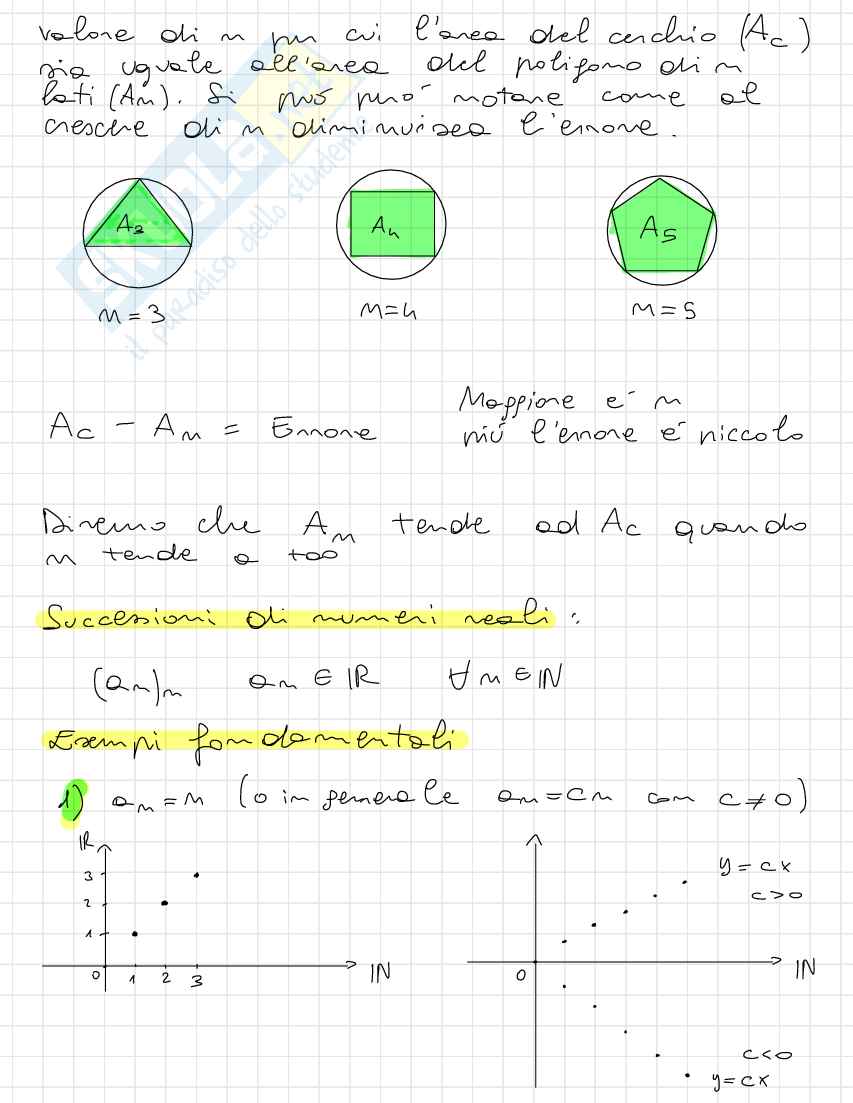 valore di n per cui l'area del cerchio (Ac)
sia uguale all'area del poligono di n
lati (An). Si può può notare come al
crescere di n diminuisca l'errore.
SKUOLA.net
il paradiso dello studente
A3
A4
A5
n = 3
n = 4
n = 5
Maggiore è n
Ac - An = Errore
più l'errore è piccolo
Diremo che An tende ad Ac quando
n tende a +∞
Successioni di numeri reali :
(an)n an ∈ ℝ ∀ n ∈ ℕ
Esempi fondamentali
1) an = n (o in generale an = cn con c ≠ 0)
ℝ
3
2
1
0 1 2 3
ℕ
y = cx
c > 0
0
ℕ
c < 0
y = cx